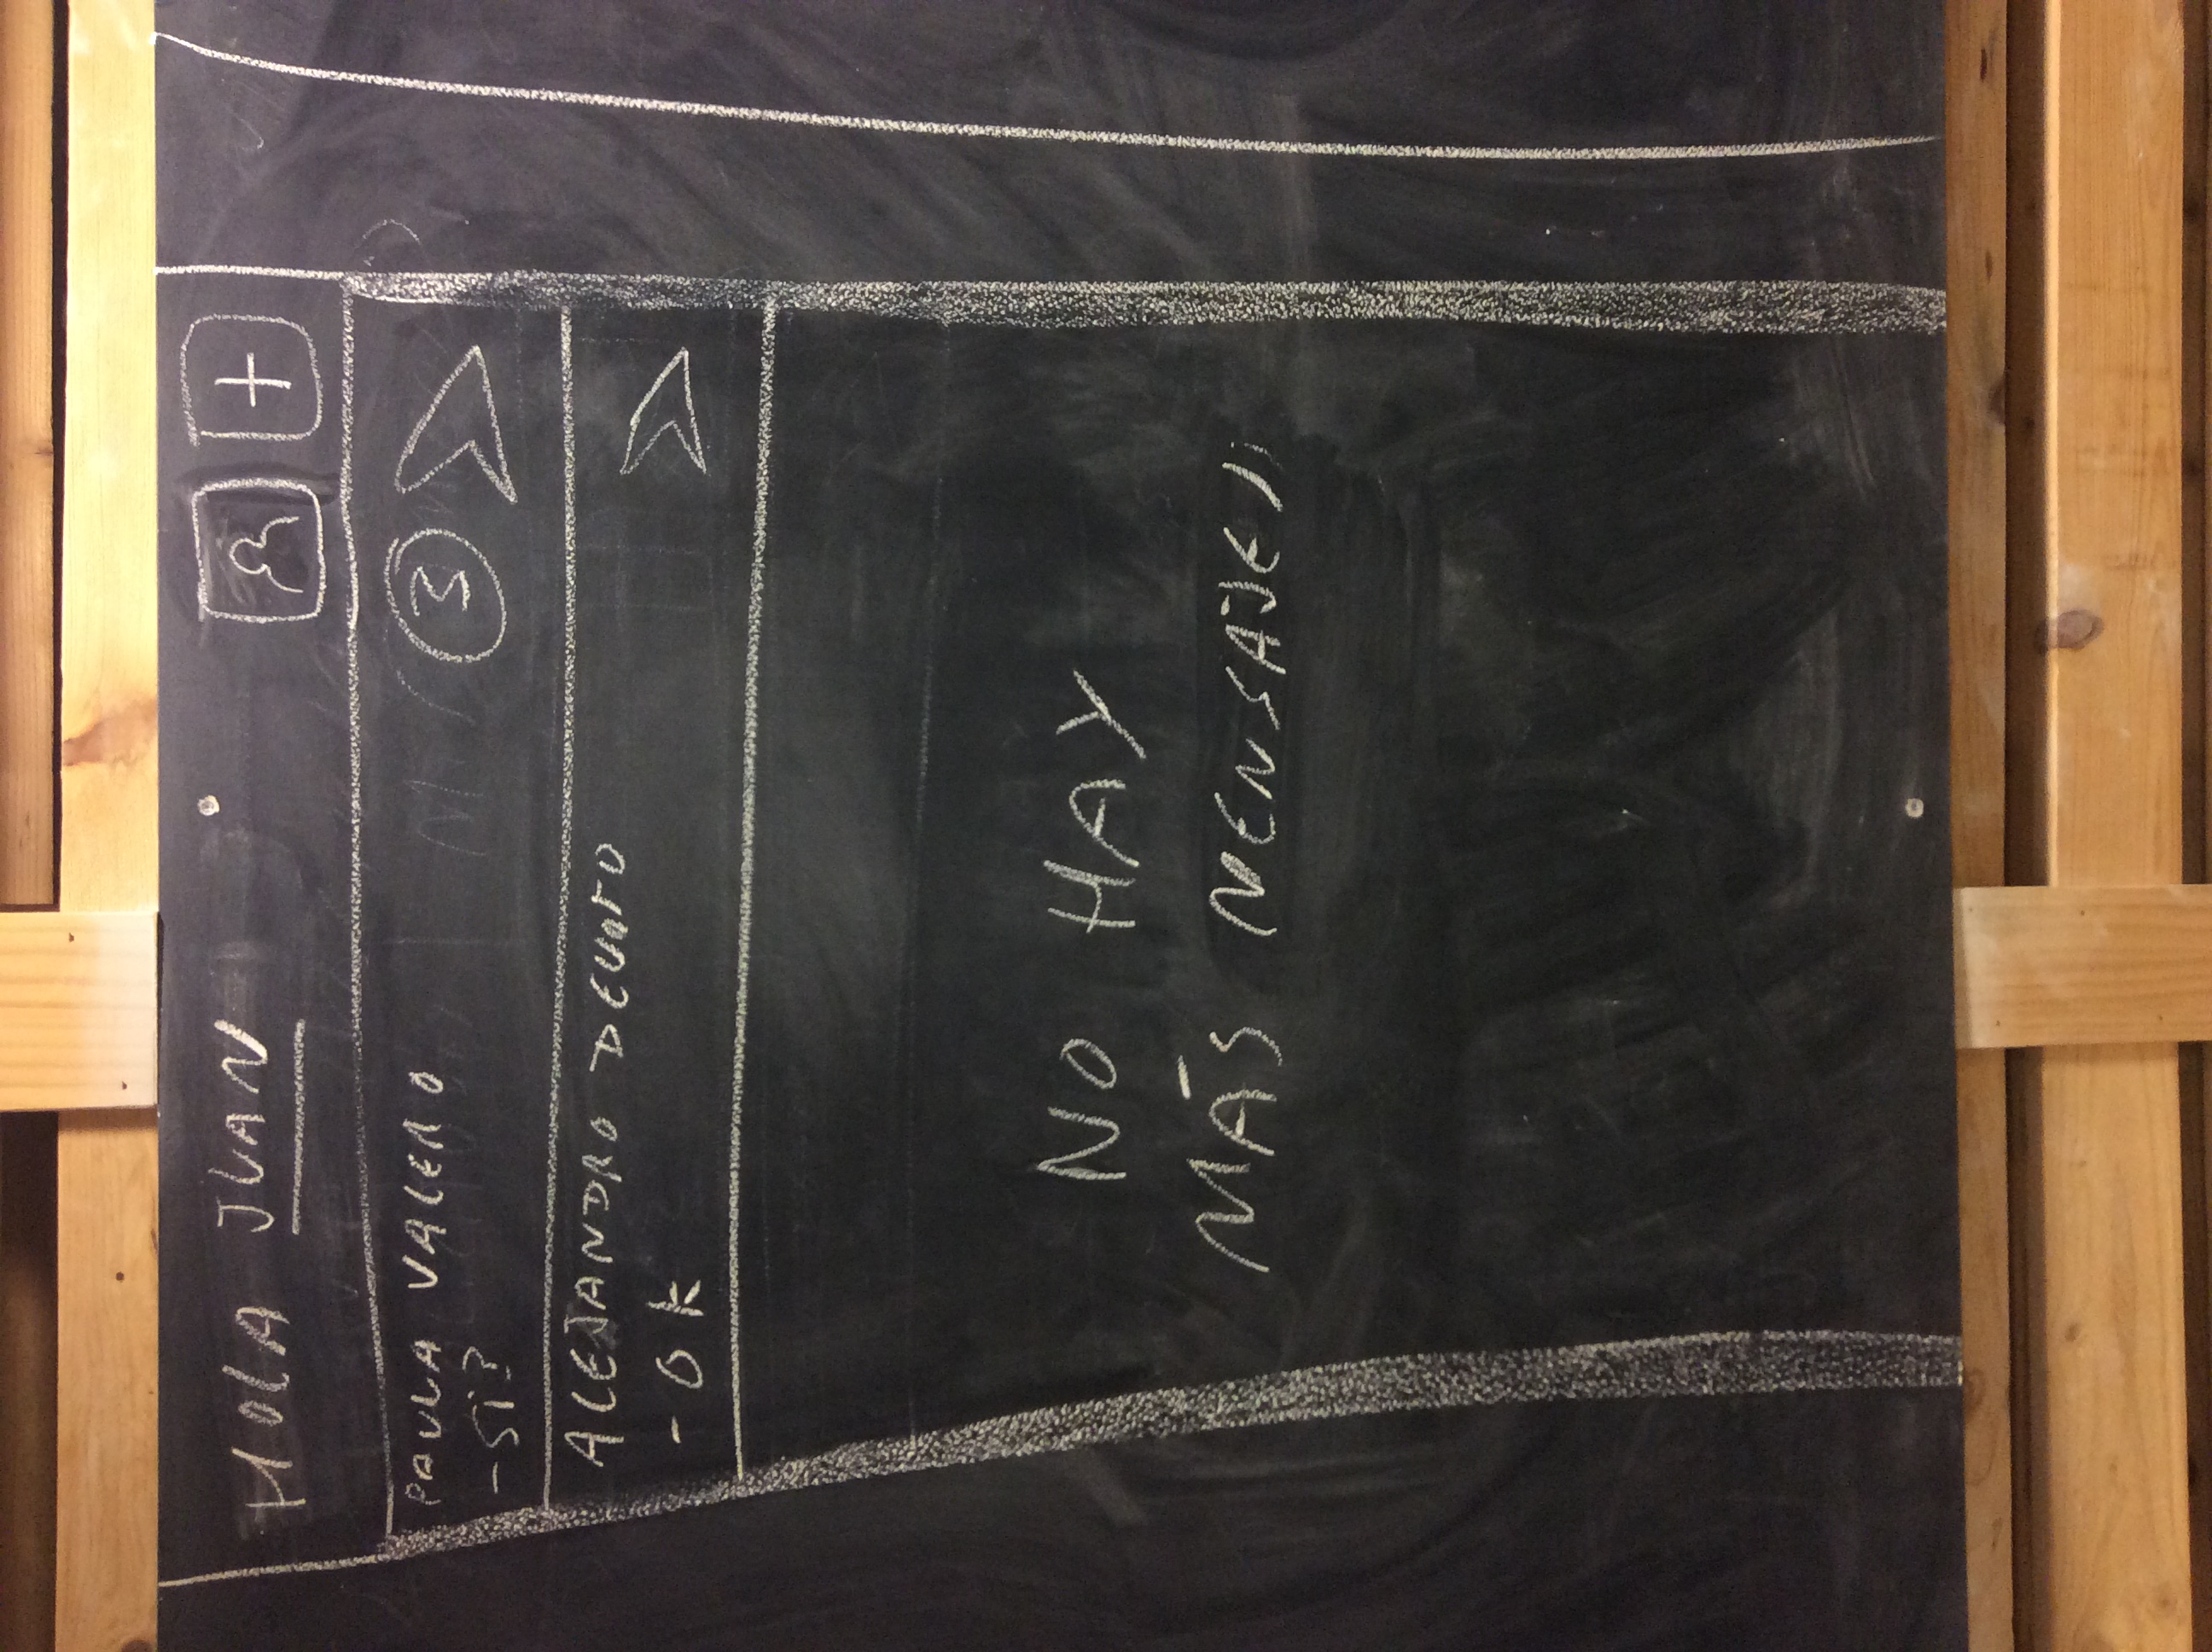 HOLA JUAN
+
PAULA VALERO
-SI?
3
ALEJANDRO DEVOTO
- OK
NO HAY
MÁS MENSAJES